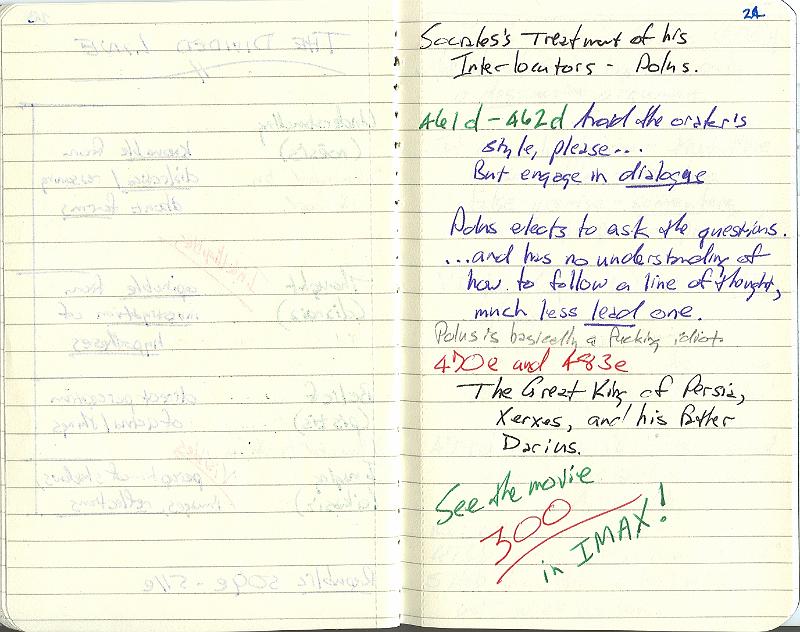 24
Socrates's Treatment of his
Interlocutors - Polus.
461d - 462d Avoid the orator's
style, please...
But engage in dialogue
Polus elects to ask the questions.
...and has no understanding of
how to follow a line of thought,
much less lead one.
Polus is basically a fucking idiot.
470e and 483e
The Great King of Persia,
Xerxes, and his Father
Darius.
See the movie
300
in IMAX!